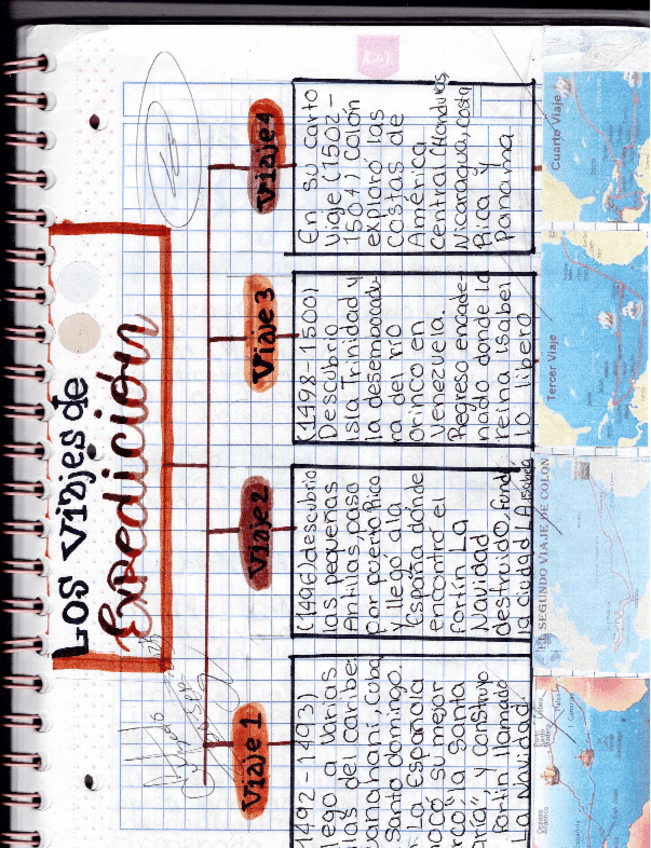 Los viajes de
Expedición
Viaje 1
1492-1493)
lego a varias
las del caribe
uanahani, Cuba
Santo domingo.
La Española
ocó su mejor
rco "la Santa
aría", y construyo
fortin llamado
La Navidad.
Viaje 2
(1496) descubrio
las pequeñas
Antillas, paso
por puerto Rico
y llegó ala
España donde
encontró el
fortin La
Navidad
destruido, fundo
la ciudad LA Isabela
Viaje 3
(1498-1500)
Descubrio
isla Trinidad y
la desembocadu-
ra del río
Orinco en
Venezuela.
Regreso encade-
nado donde la
reina isabel
lo libero
Viaje 4
En su carto
viaje (1502-
1504) colón
exploró las
costas de
América
Central (Honduras,
Nicaragua, costa
Rica y
Panama
EL SEGUNDO VIAJE DE COLON
Tercer Viaje
Cuarto Viaje